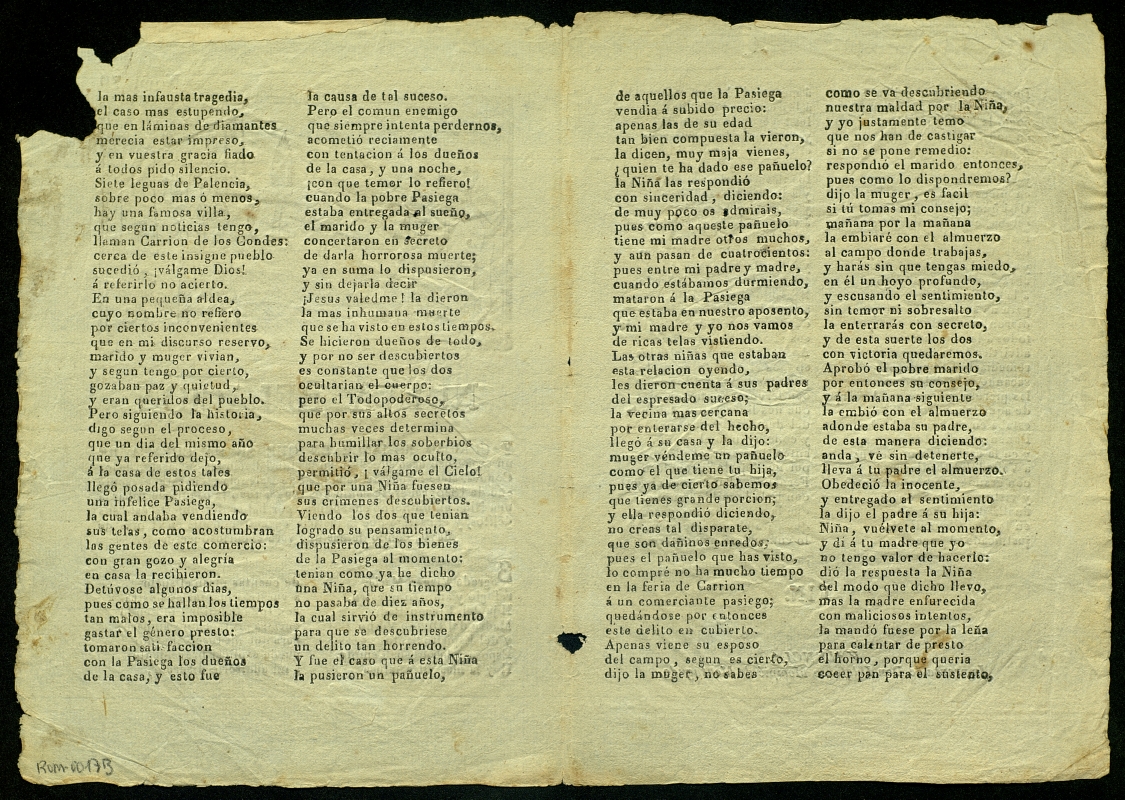 la mas infausta tragedia,
el caso mas estupendo,
que en láminas de diamantes
merecia estar impreso,
y en vuestra gracia fiado
á todos pido silencio.
Siete leguas de Palencia,
sobre poco mas ó menos,
hay una famosa villa,
que segun noticias tengo,
llaman Carrion de los Condes:
cerca de este insigne pueblo
sucedió, ¡válgame Dios!
á referirlo no acierto.
En una pequeña aldea,
cuyo nombre no refiero
por ciertos inconvenientes
que en mi discurso reservo,
marido y muger vivian,
y segun tengo por cierto,
gozaban paz y quietud,
y eran queridos del pueblo.
Pero siguiendo la historia,
digo segun el proceso,
que un dia del mismo año
que ya referido dejo,
á la casa de estos tales
llegó posada pidiendo
una infelice Pasiega,
la cual andaba vendiendo
sus telas, como acostumbran
las gentes de este comercio:
con gran gozo y alegría
en casa la recibieron.
Detúvose algunos dias,
pues como se hallan los tiempos
tan malos, era imposible
gastar el género presto:
tomaron sati faccion
con la Pasiega los dueños
de la casa, y esto fue
la causa de tal suceso.
Pero el comun enemigo
que siempre intenta perdernos,
acometió reciamente
con tentacion á los dueños
de la casa, y una noche,
¡con que temor lo refiero!
cuando la pobre Pasiega
estaba entregada al sueño,
el marido y la muger
concertaron en secreto
de darla horrorosa muerte;
ya en suma lo dispusieron,
y sin dejarla decir
¡Jesus valedme! la dieron
la mas inhumana muerte
que se ha visto en estos tiempos.
Se hicieron dueños de todo,
y por no ser descubiertos
es constante que los dos
ocultarian el cuerpo:
pero el Todopoderoso,
que por sus altos secretos
muchas veces determina
para humillar los soberbios
descubrir lo mas oculto,
permitió, ¡ válgame el Cielo!
que por una Niña fuesen
sus crimenes descubiertos.
Viendo los dos que tenian
logrado su pensamiento,
dispusieron de los bienes
de la Pasiega al momento:
tenian como ya he dicho
una Niña, que su tiempo
no pasaba de diez años,
la cual sirvió de instrumento
para que se descubriese
un delito tan horrendo.
Y fue el caso que á esta Niña
la pusieron un pañuelo,
de aquellos que la Pasiega
vendia á subido precio:
apenas las de su edad
tan bien compuesta la vieron,
la dicen, muy maja vienes,
¿quien te ha dado ese pañuelo?
la Niña las respondió
con sinceridad, diciendo:
de muy poco os admirais,
pues como aqueste pañuelo
tiene mi madre otros muchos,
y aun pasan de cuatrocientos:
pues entre mi padre y madre,
cuando estábamos durmiendo,
mataron á la Pasiega
que estaba en nuestro aposento,
y mi madre y yo nos vamos
de ricas telas vistiendo.
Las otras niñas que estaban
esta relacion oyendo,
les dieron cuenta á sus padres
del espresado suceso;
la vecina mas cercana
por enterarse del hecho,
llegó á su casa y la dijo:
muger véndeme un pañuelo
como el que tiene tu hija,
pues ya de cierto sabemos
que tienes grande porcion;
y ella respondió diciendo,
no creas tal disparate,
que son dañinos enredos:
pues el pañuelo que has visto,
lo compré no ha mucho tiempo
en la feria de Carrion
á un comerciante pasiego;
quedándose por entonces
este delito en cubierto.
Apenas viene su esposo
del campo, segun es cierto,
dijo la muger, no sabes
como se va descubriendo
nuestra maldad por la Niña,
y yo justamente temo
que nos han de castigar
si no se pone remedio:
respondió el marido entonces,
pues como lo dispondremos?
dijo la muger, es facil
si tú tomas mi consejo;
mañana por la mañana
la embiaré con el almuerzo
al campo donde trabajas,
y harás sin que tengas miedo,
en él un hoyo profundo,
y escusando el sentimiento,
sin temor ni sobresalto
la enterrarás con secreto,
y de esta suerte los dos
con victoria quedaremos.
Aprobó el pobre marido
por entonces su consejo,
y á la mañana siguiente
la embió con el almuerzo
adonde estaba su padre,
de esta manera diciendo:
anda, ve sin detenerte,
lleva á tu padre el almuerzo.
Obedeció la inocente,
y entregado al sentimiento
la dijo el padre á su hija:
Niña, vuélvete al momento,
y di á tu madre que yo
no tengo valor de hacerlo:
dió la respuesta la Niña
del modo que dicho llevo,
mas la madre enfurecida
con maliciosos intentos,
la mandó fuese por la leña
para calentar de presto
el horno, porque queria
cocer pan para el sustento,